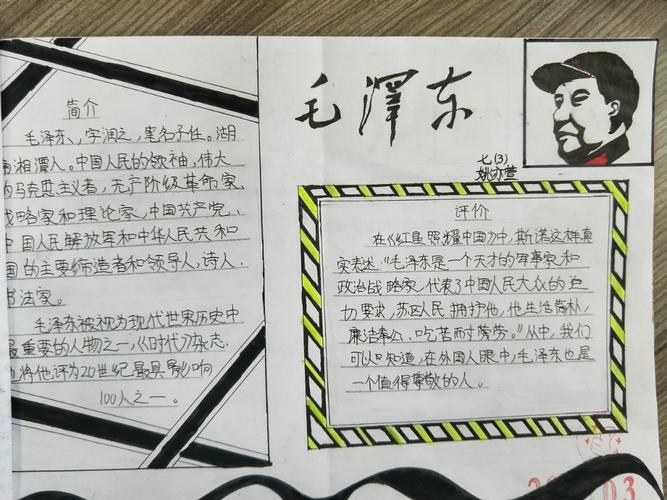 简介
毛泽东，字润之，笔名子任。湖
南湘潭人。中国人民的领袖，伟大
的马克思主义者，无产阶级革命家、
战略家和理论家，中国共产党、
中国人民解放军和中华人民共和
国的主要缔造者和领导人，诗人，
书法家。
毛泽东被视为现代世界历史中
最重要的人物之一，《时代》杂志
也将他评为20世纪最具影响
100人之一。
毛澤东
七(3)
姚亦萱
评价
在《红星照耀中国》中，斯诺这样真
实表述："毛泽东是一个天才的军事家和
政治战略家，代表了中国人民大众的迫
切要求，苏区人民拥护他，他生活简朴，
廉洁奉公、吃苦而耐劳。"从中，我们
可以知道，在外国人眼中，毛泽东也是
一个值得尊敬的人。